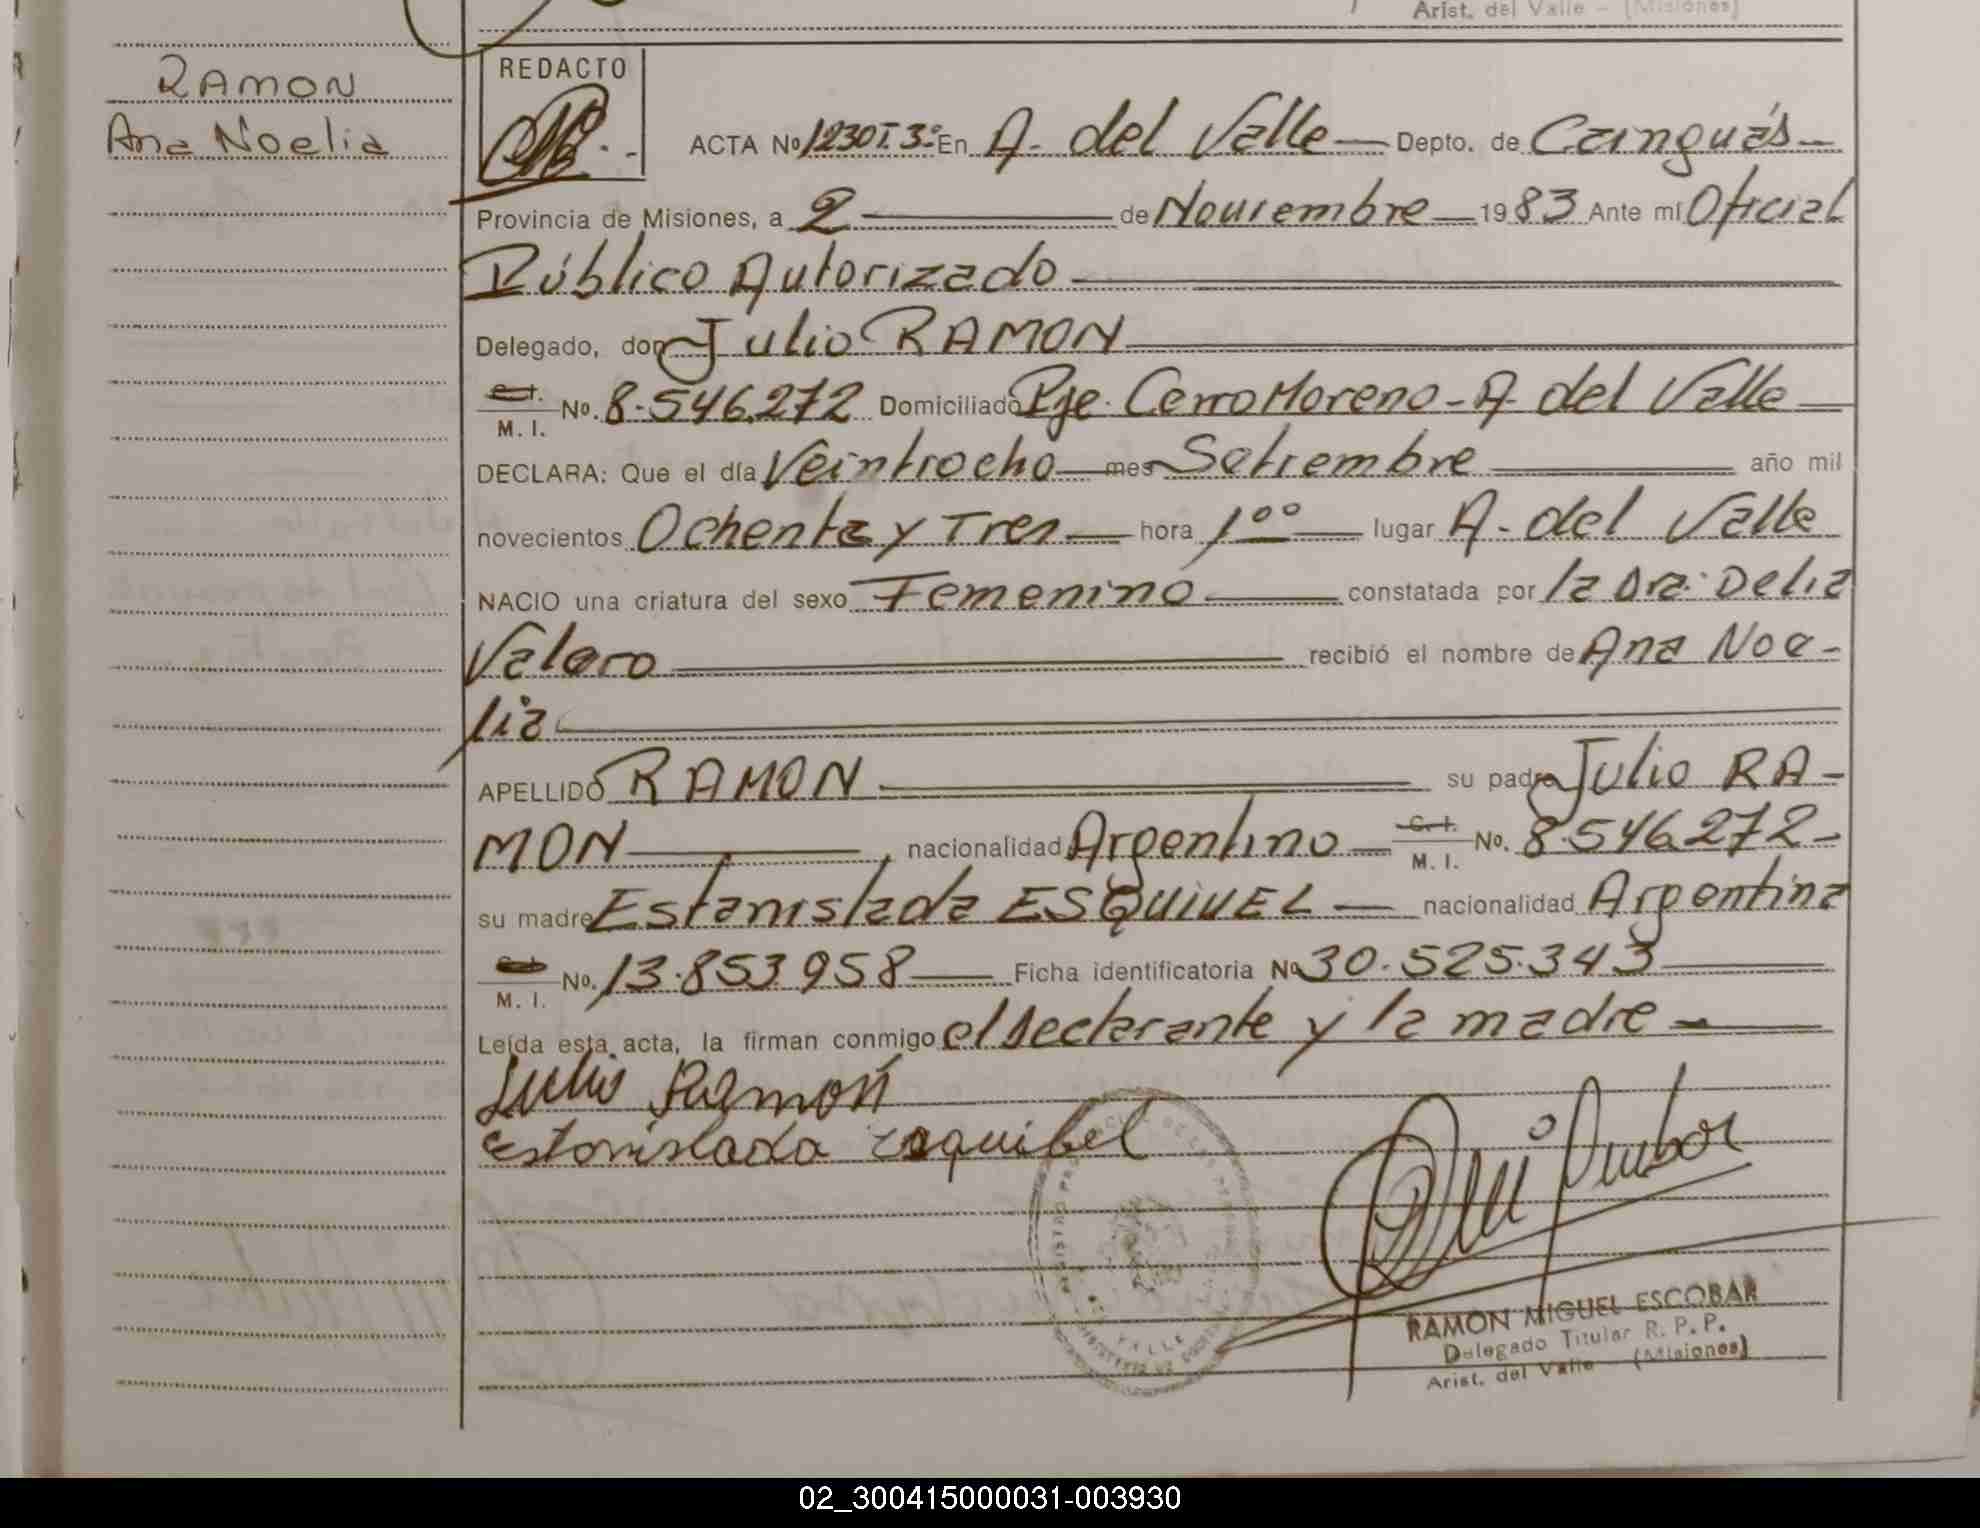 Arist. del Valle - (Misiones)
RAMON
Ana Noelia
REDACTO
ACTA Nº 1230T.3º En A. del Valle — Depto. de Cainguás —
Provincia de Misiones, a 2 — de Noviembre — 1983 Ante mí Oficial
Público Autorizado
Delegado, don Julio RAMON
C.I.
M. I. No. 8.546.272 Domiciliado Pje. Cerro Moreno - A. del Valle
DECLARA: Que el día Veintiocho — mes Setiembre — año mil
novecientos Ochenta y Tres — hora 1ºº — lugar A. del Valle
NACIO una criatura del sexo Femenino — constatada por la Dra. Delia
Valoro — recibió el nombre de Ana Noe-
lia
APELLIDO RAMON — su padre Julio RA-
MON —, nacionalidad Argentino — C. I.
M. I. No. 8.546.272 -
su madre Estanislada ESQUIVEL — nacionalidad Argentina
M. I. No. 13.853.958 — Ficha identificatoria No 30.525.343
Leída esta acta, la firman conmigo el declarante y la madre —
Julio Ramón
estanislada esquibel
RAMON MIGUEL ESCOBAR
Delegado Titular R. P. P.
Arist. del Valle - (Misiones)
02_300415000031-003930